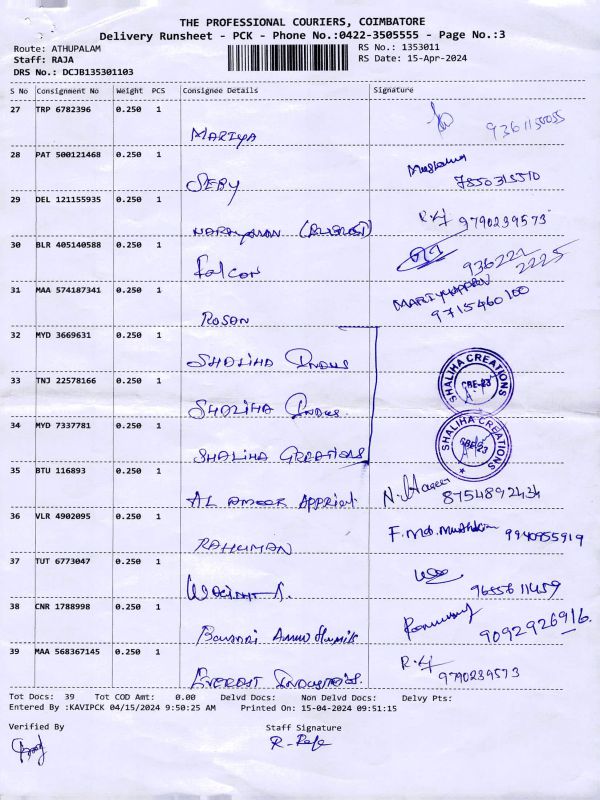 THE PROFESSIONAL COURIERS, COIMBATORE
Delivery Runsheet - PCK - Phone No.:0422-3505555 - Page No.:3
Route: ATHUPALAM
RS No.: 1353011
Staff: RAJA
RS Date: 15-Apr-2024
DRS No.: DCJB135301103
S No Consignment No Weight PCS Consignee Details Signature
27 TRP 6782396 0.250 1
MARIYA 9361150055
28 PAT 500121468 0.250 1
SEBY 7550315510
29 DEL 121155935 0.250 1
R.y 9790239573
30 BLR 405140588 0.250 1
Falcon 936221 2225
31 MAA 574187341 0.250 1
MARIYAPPAN
ROSAN 9715460100
32 MYD 3669631 0.250 1
SHALIHA Indus
33 TNJ 22578166 0.250 1
SHALIHA CREATIONS CBE-23
SHALIHA Indus
34 MYD 7337781 0.250 1
SHALIHA CREATIONS CBE-23
SHALIHA CREATIONS
35 BTU 116893 0.250 1
AL AMEER 8754892434
36 VLR 4902095 0.250 1
RAHUMAN 9940855919
37 TUT 6773047 0.250 1
9655611459
38 CNR 1788998 0.250 1
9092926916.
39 MAA 568367145 0.250 1
R.y
EVEREST INDUSTRIES. 9790239573
Tot Docs: 39 Tot COD Amt: 0.00 Delvd Docs: Non Delvd Docs: Delvy Pts:
Entered By :KAVIPCK 04/15/2024 9:50:25 AM Printed On: 15-04-2024 09:51:15
Verified By Staff Signature